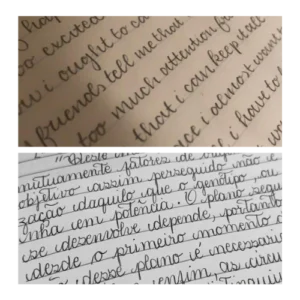 too excited
i ought to ca
friends tell me that
too much attention fo
that i can keep it all
ce i almost want
i have to l
mutuamente fatores de
objetivo assim perseguido não é
zação daquilo que o genótipo, ou
nha em potência. O plano segu
se desenvolve depende, portanto
desde o primeiro momento d
desse plano é necessári
assim, as circu